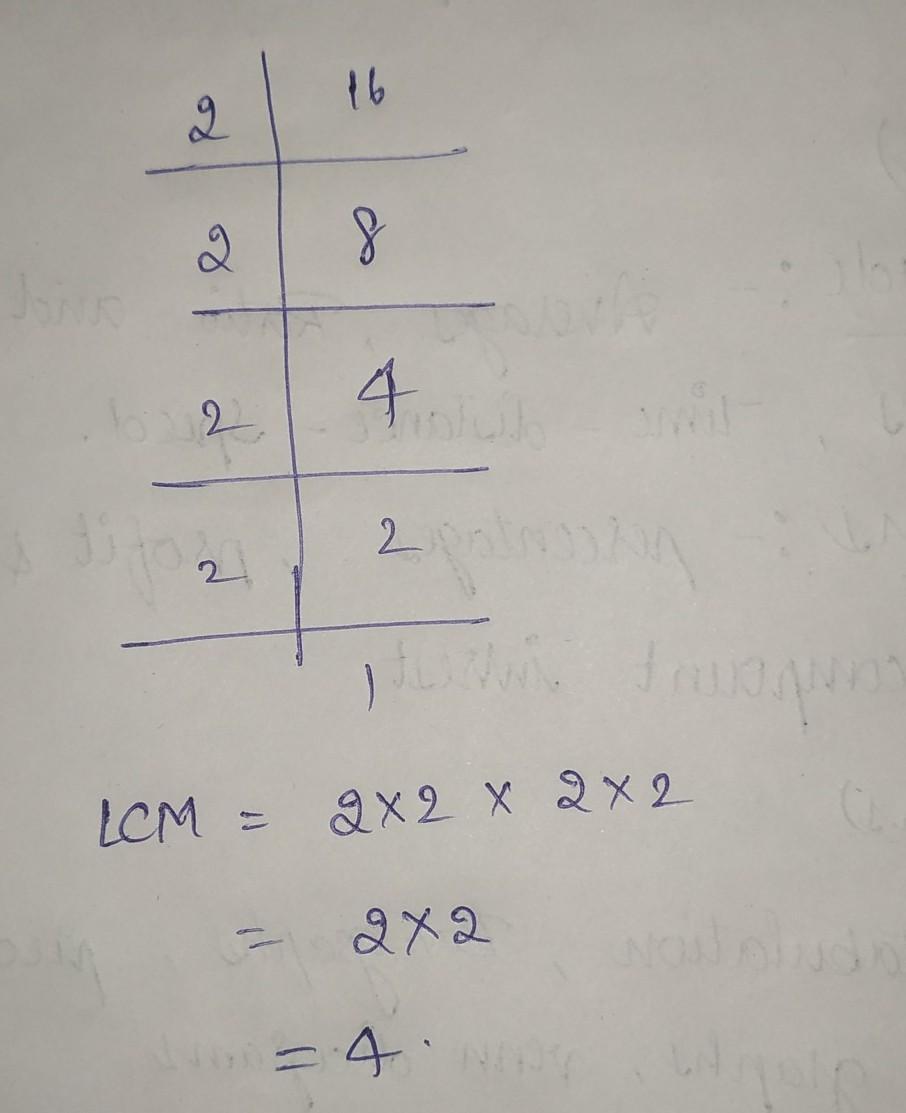 2 16
2 8
2 4
2 2
1
LCM = 2×2 × 2×2
= 2×2
= 4.